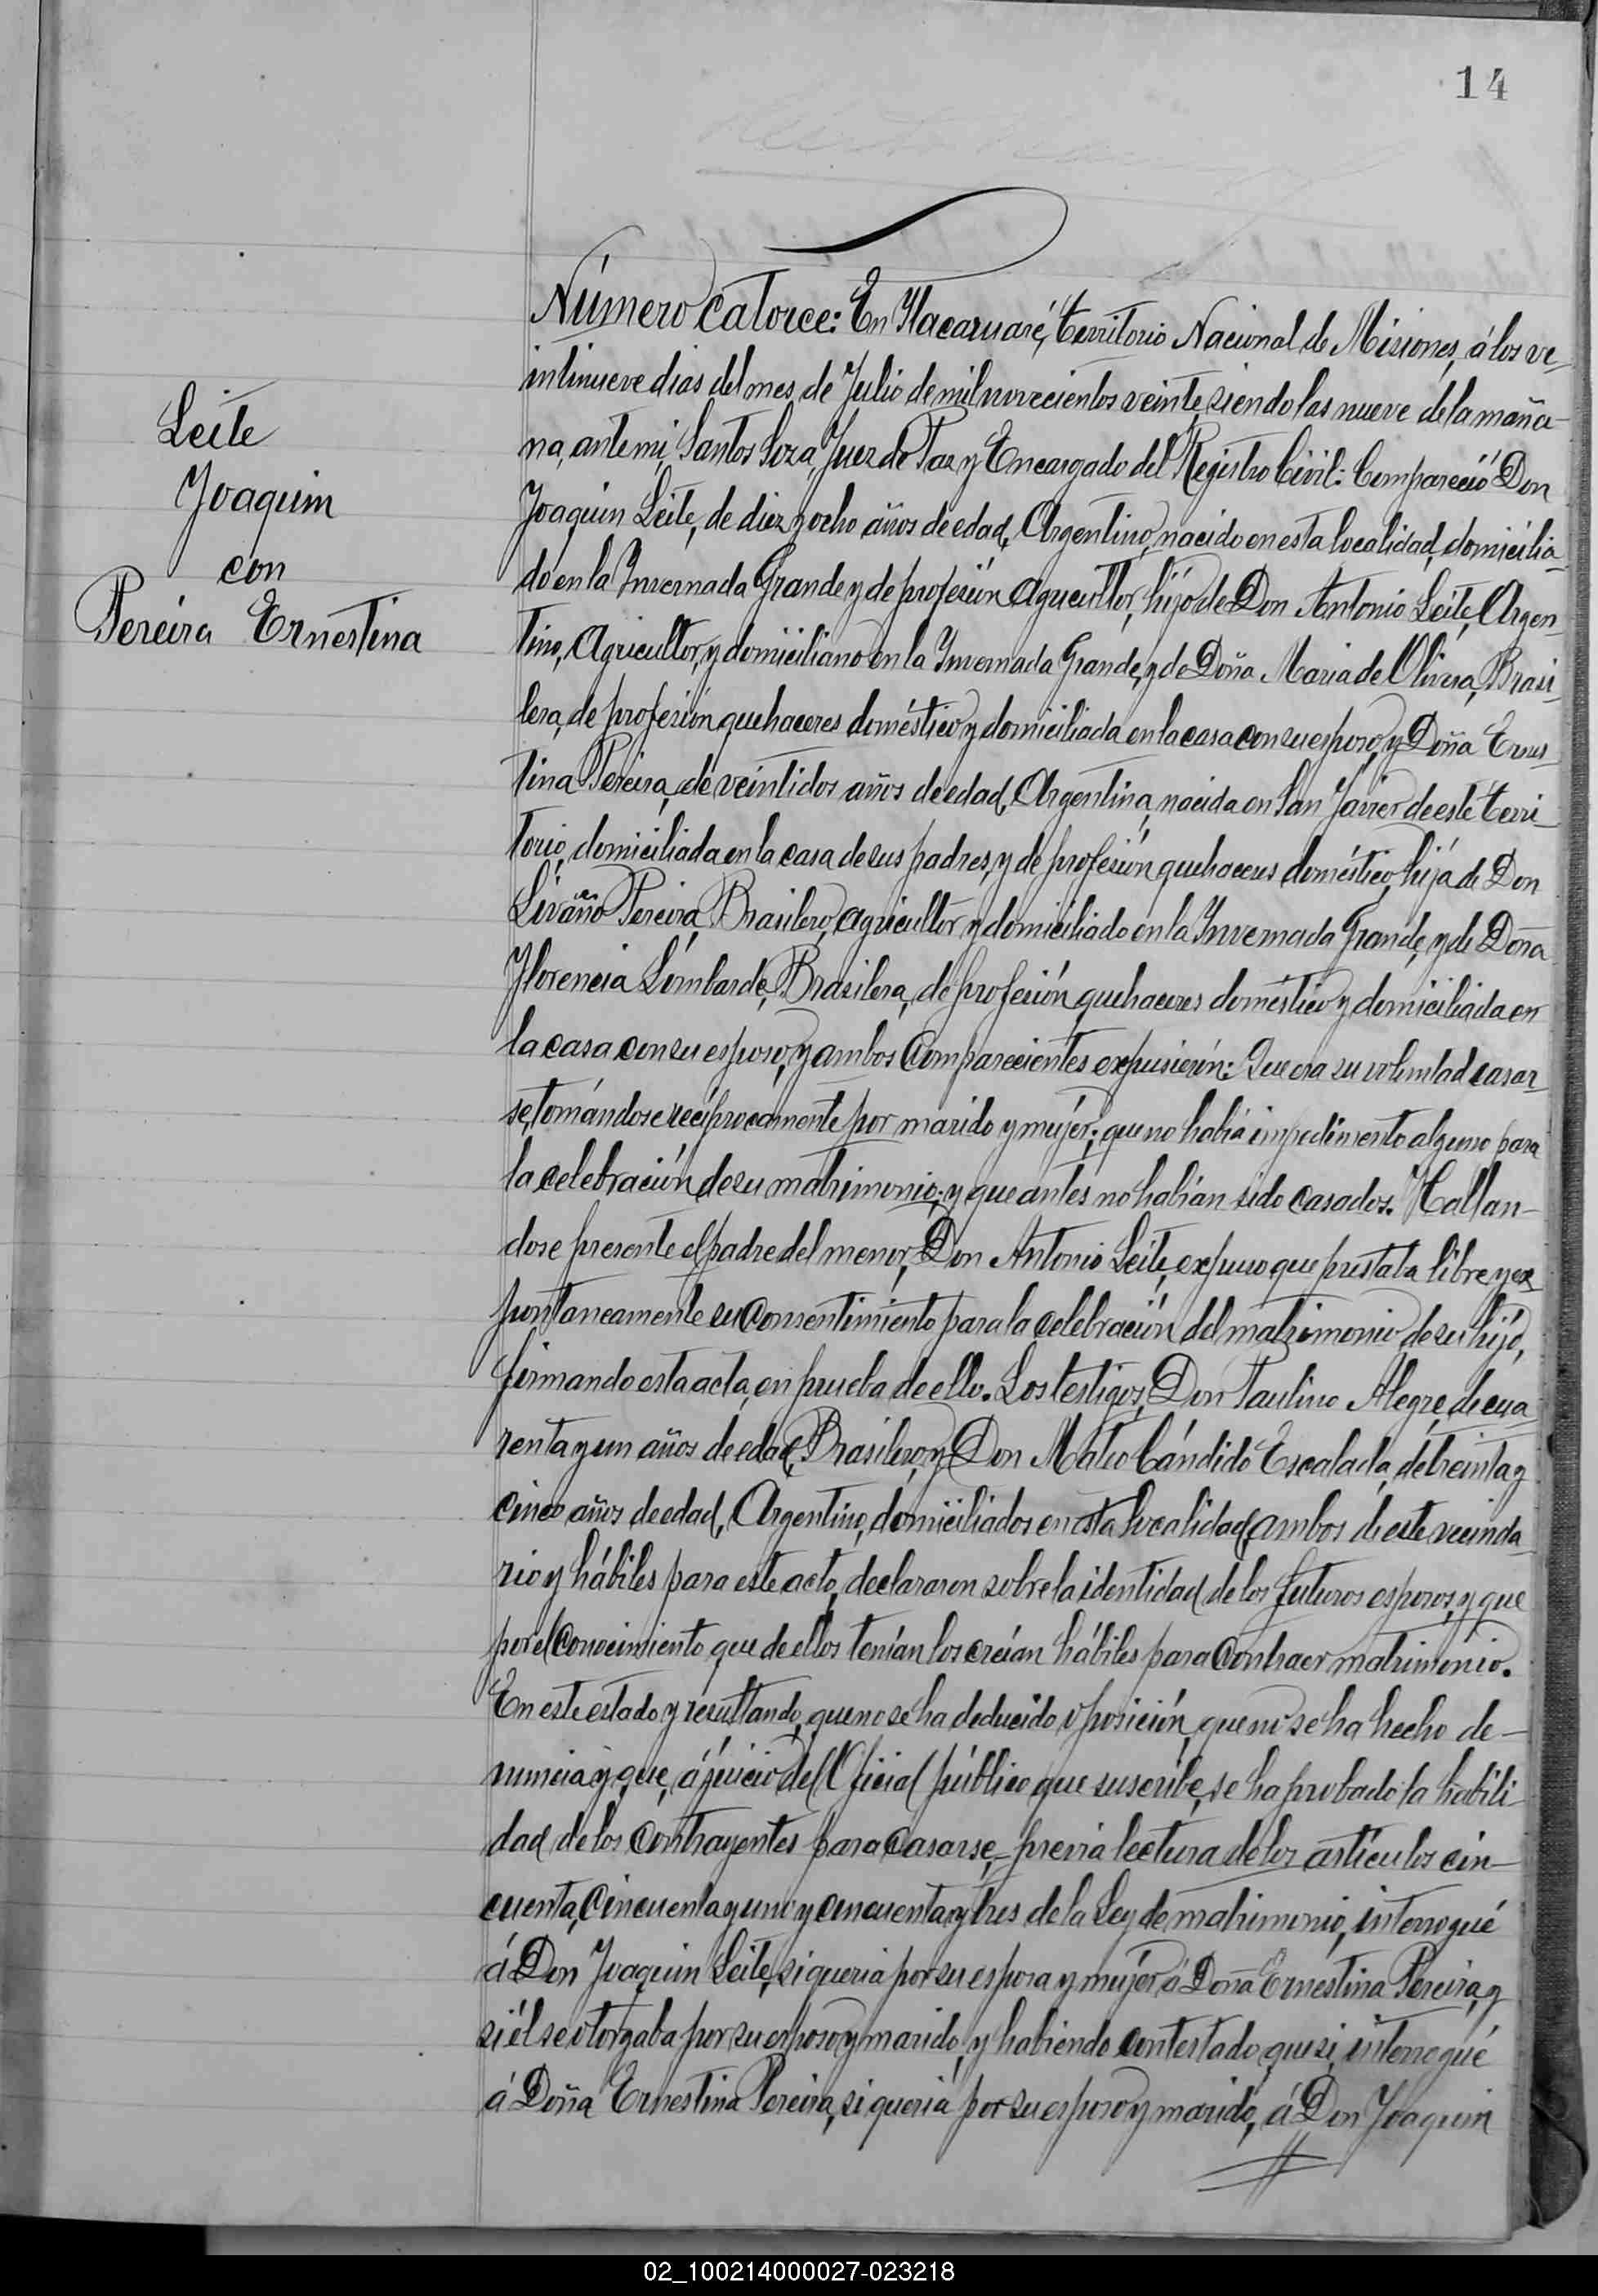 14
Leite
Joaquin
con
Pereira Ernestina
Número catorce: En Itacaruaré, territorio Nacional de Misiones, á los ve-
intinueve dias del mes de Julio de mil novecientos veinte, siendo las nueve de la maña-
na, ante mi, Santos Soza, Juez de Paz y Encargado del Registro Civil: Compareció Don
Joaquin Leite, de diez y ocho años de edad, Argentino, nacido en esta localidad, domicilia-
do en la Invernada Grande y de profesión agricultor, hijo de Don Antonio Leite, Argen-
tino, Agricultor, y domiciliano en la Invernada Grande, y de Doña Maria de Olivera, Brasi-
lera, de profesión quehaceres doméstico y domiciliada en la casa con su esposo, y Doña Ernes-
tina Pereira, de veintidos años de edad, Argentina, nacida en San Javier de este terri-
torio, domiciliada en la casa de sus padres, y de profesión quehaceres doméstico, hija de Don
Pereira, Brasilero, agricultor y domiciliado en la Invernada Grande, y de Doña
Florencia Lombarde, Brasilera, de profesión quehaceres doméstico y domiciliada en
la casa con su esposo, y ambos comparecientes expusierón: Que era su voluntad casar-
se, tomándose recíprocamente por marido y mujer; que no había impedimento alguno para
la celebración de su matrimonio; y que antes no habían sido casados. Hallan-
dose presente el padre del menor, Don Antonio Leite, expuso que prestaba libre y ex-
pontaneamente su consentimiento para la celebración del matrimonio de su hijo,
firmando esta acta, en prueba de ello. Los testigos, Don Paulino Alegre, de cua-
renta y un años de edad, Brasilero, y Don Mateo Cándido Escalada, de treinta y
cinco años de edad, Argentino, domiciliados en esta localidad, ambos de este vecinda-
rio y hábiles para este acto, declararon sobre la identidad de los futuros esposos, y que
por el conocimiento que de ellos tenían los creían hábiles para contraer matrimonio.
En este estado y resultando, que no se ha deducido oposición, que no se ha hecho de-
nuncia y que, á juicio del Oficial público que suscribe, se ha probado la habili-
dad de los contrayentes para casarse, previa lectura de los artículos cin-
cuenta, cincuenta y uno y cincuenta y tres de la Ley de matrimonio, interrogué
á Don Joaquin Leite, si queria por su esposa y mujer á Doña Ernestina Pereira, y
si él se otorgaba por su esposo y marido, y habiendo contestado que si, interrogué
á Doña Ernestina Pereira, si queria por su esposo y marido, á Don Joaquin
02_100214000027-023218